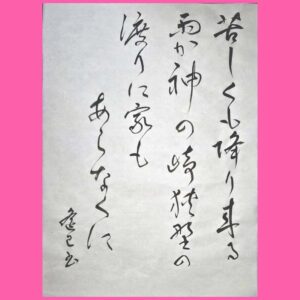 苦しくも降り来る
雨か神の崎狭野の
渡りに家も
あらなくに